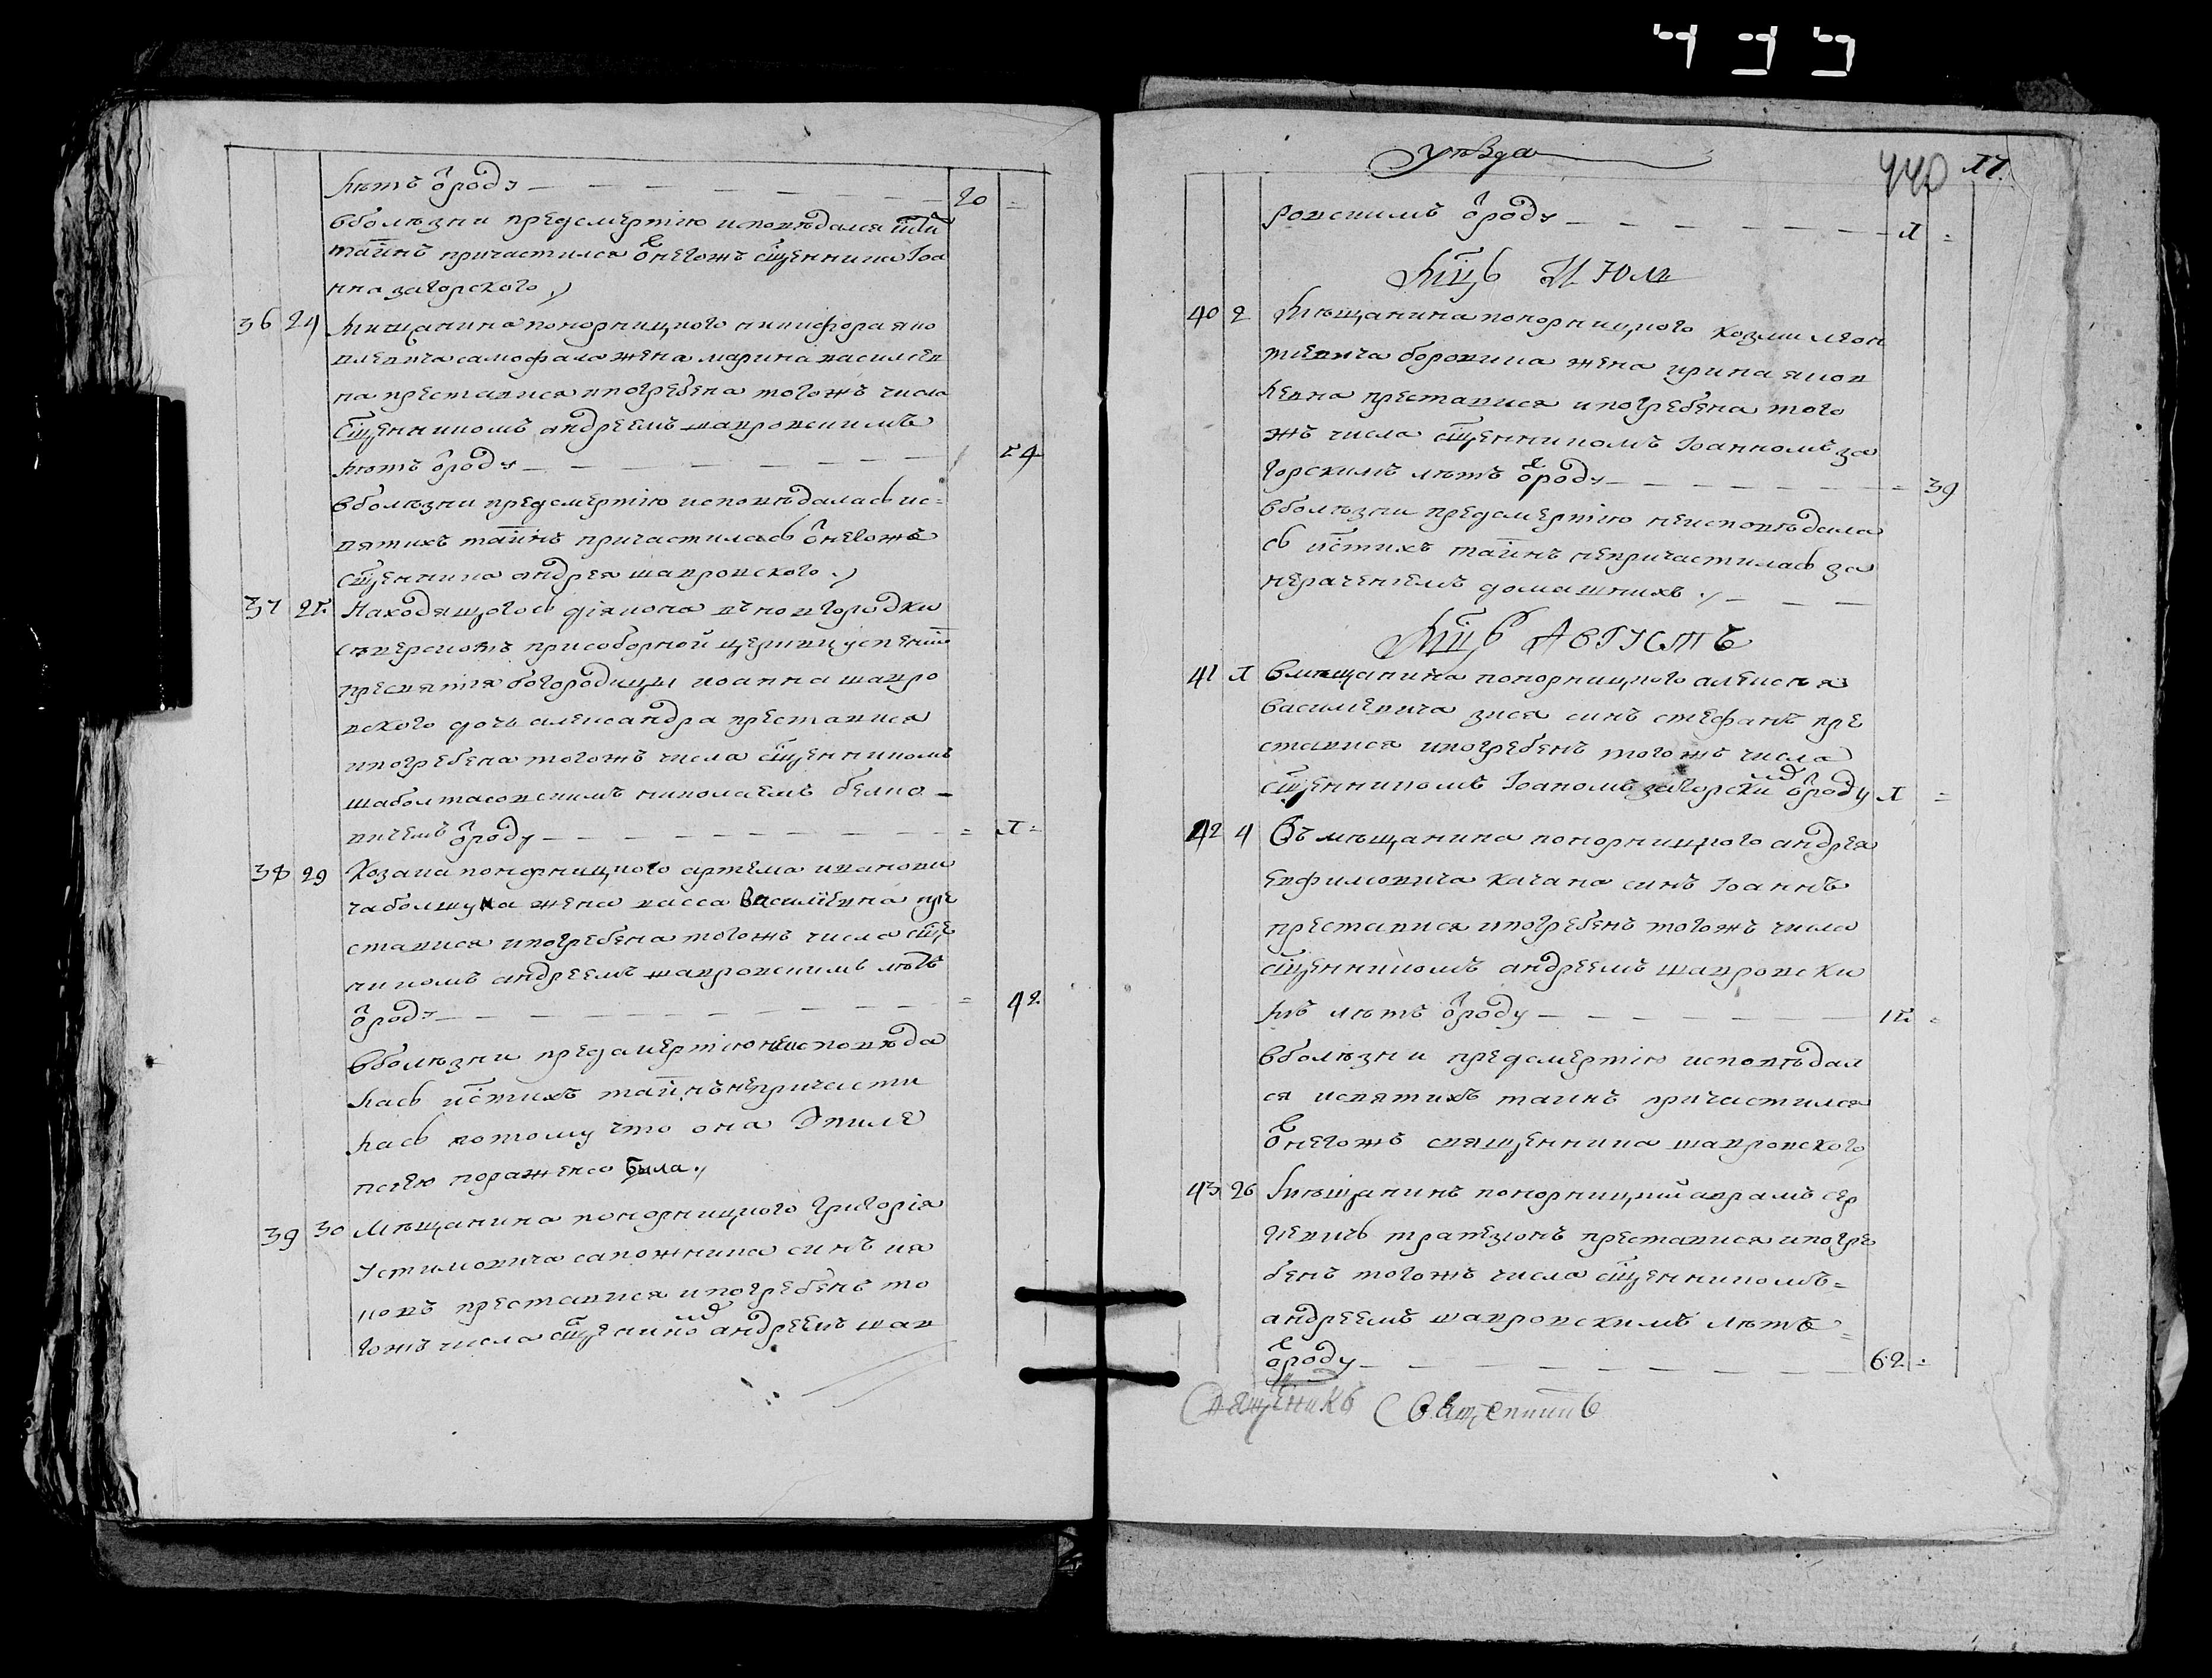 лѣтъ ѿроду — 20 =
вболѣзни предсмертію исповѣдался
таинъ причастился ѿнегожъ сщенника Іоа
нна загорского
36 24 Мищанина понорницкого никифора яко
влевича самофала жена марина василев
на преставися ипогребена тогожъ числа
Сщенникомъ андреемъ шавровскимъ
лѣтъ ѿроду — 54
вболѣзни предсмертію исповѣдалась ис=
вятихъ таинъ причастилась ѿнегожъ
Сщенника андрея шавровского
37 25 Находящогось діякона вновгородки
сѣверскомъ присоборной церкви успенія
пресвятія богородицы иоанна шавро
вского дочь александра преставися
ипогребена тогожъ числа сщенникомъ
шаболтасовскимъ николаемъ белко=
вичемъ ѿроду — = 1 =
38 29 Козака понорницкого артема иванови
ча болшука жена васса василіевна пре
ставися ипогребена тогожъ числа сще
никомъ андреемъ шавровскимъ лѣтъ
ѿроду — = 42
вболѣзни предсмертію неисповѣда
лась истихъ таинъ непричасти
лась потому что она Эпиле
псіею поражена была
39 30 Мѣщанина понорницкого Григорія
устимовича сапожника синъ ия
ковъ преставися ипогребенъ то
гожъ числа сщенникомъ андреемъ шав
уѣзда
440 17.
ровскимъ ѿроду — 1 =
Мцъ Июль
40 2 Мѣщанина понорницкого козми леон
тиевича боровика жена ирина яков
левна преставися ипогребена того
жъ числа сщенникомъ Іоанномъ за
горскимъ лѣтъ ѿроду — = 39
вболѣзни предсмертію неисповѣдала
сь истихъ таинъ непричастилась за
нерачениемъ домашнихъ
Мцъ Августъ
41 1 вмѣщанина понорницкого алексѣя
василевича зися синъ стефанъ пре
ставися ипогребенъ тогожъ числа
сщенникомъ Іоаномъ загорскимъ ѿроду 1 =
42 4 Въ мѣщанина понорницкого андрея
евфимовича качана синъ Іоаннъ
преставися ипогребенъ тогожъ числа
сщенникомъ андреемъ шавровски
мъ лѣтъ ѿроду — 15 =
вболѣзни предсмертію исповѣдал
ся исвятихъ таинъ причастился
ѿнегожъ священника шавровского
43 26 Мѣщанинъ понорницкий аврамъ сер
геевичъ преставися ипогре
бенъ тогожъ числа сщенникомъ=
андреемъ шавровскимъ лѣтъ=
ѿроду — 62 =
Священникъ Священникъ